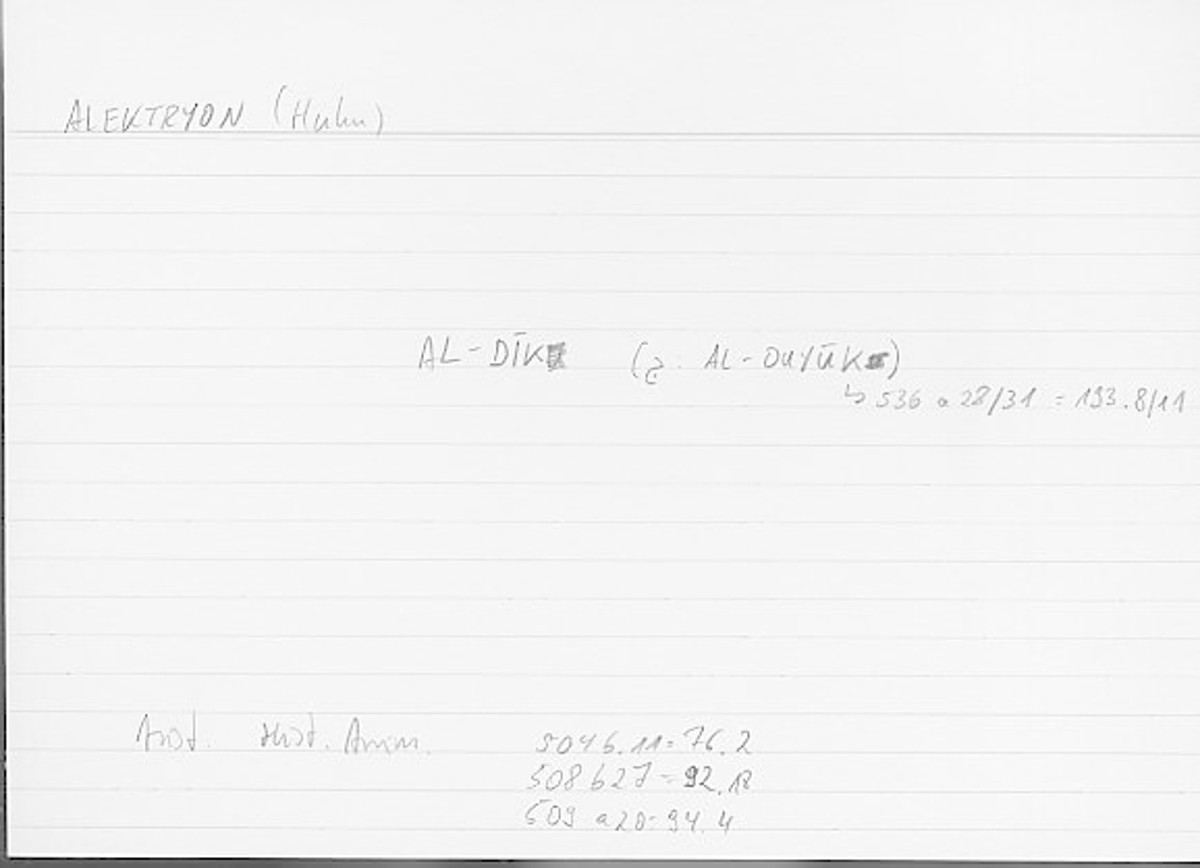 ALEKTRYON (Huhn)
AL-DĪK (ج. AL-DUYŪK)
↳ 536 a 28/31 = 193.8/11
Arist. Hist. Anim. 504 b.11 = 76.2
508 b 27 = 92.18
509 a 20 = 94.4